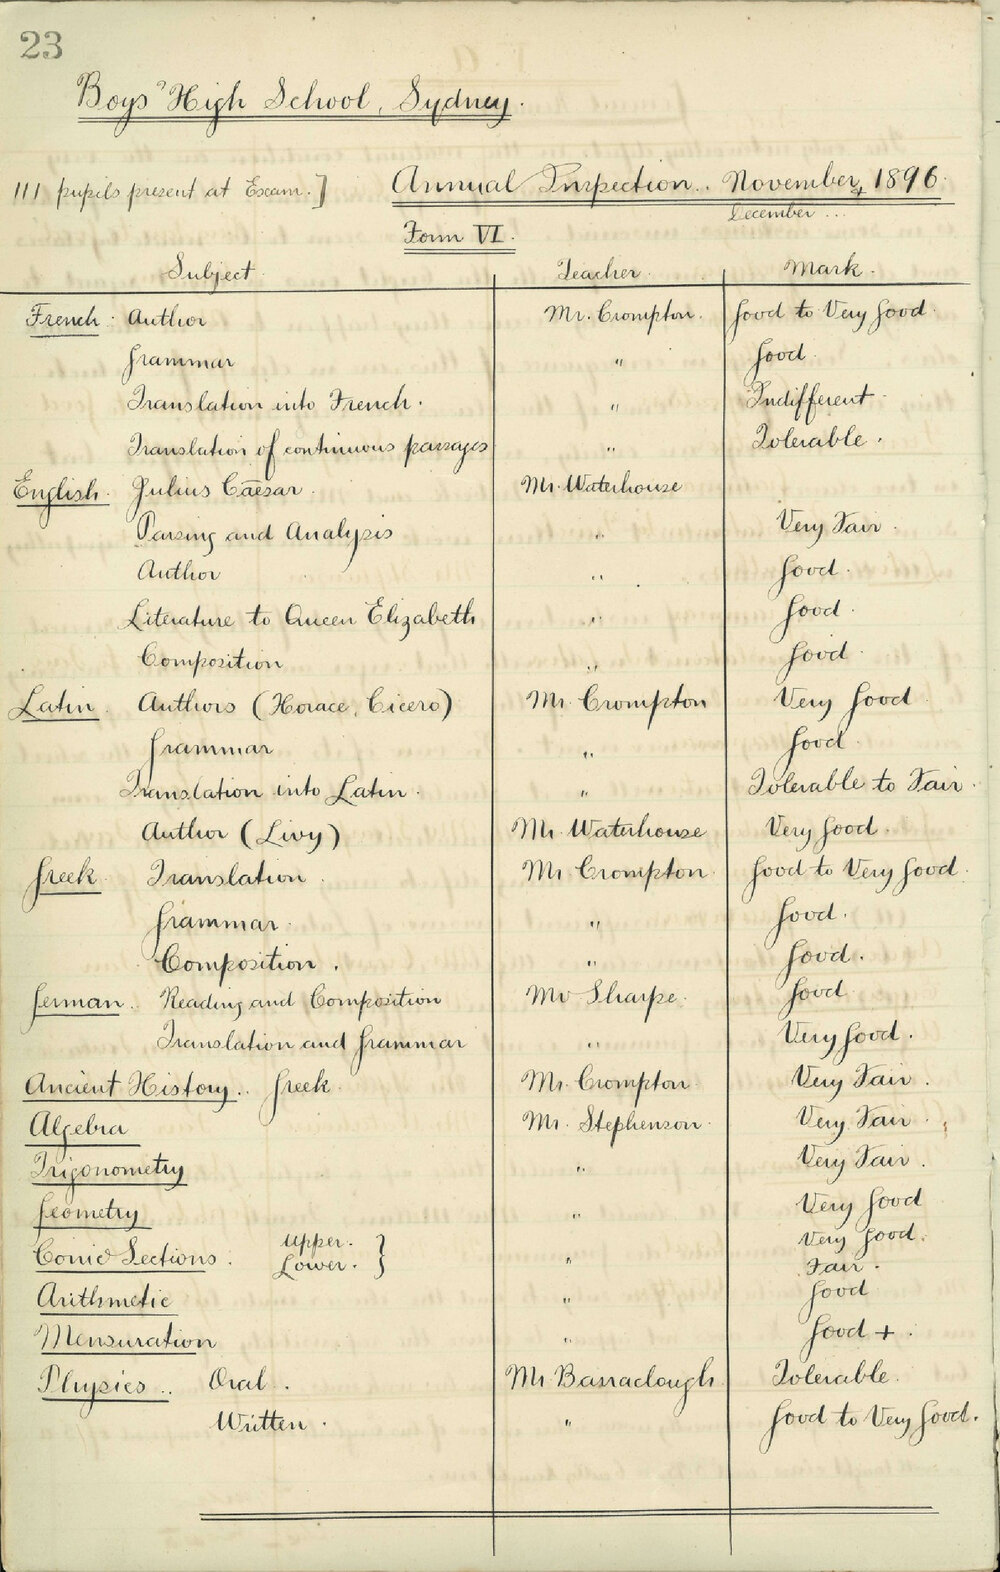 23
Boys' High School, Sydney.
111 pupils present at Exam.] Annual Inspection.. November, 1896.
December...
Form VI.
Subject. Teacher. Mark.
French: Author Mr. Crompton. Good to Very Good.
Grammar " Good.
Translation into French. " Indifferent
Translation of continuous passages " Tolerable.
English. Julius Caesar. Mr. Waterhouse
Parsing and Analysis " Very Fair.
Author " Good.
Literature to Queen Elizabeth " Good.
Composition " Good
Latin. Authors (Horace, Cicero) Mr. Crompton Very Good
Grammar " Good.
Translation into Latin. " Tolerable to Fair.
Author (Livy) Mr. Waterhouse Very Good.
Greek Translation Mr. Crompton Good to Very Good.
Grammar. " Good.
Composition. " Good.
German.. Reading and Composition Mr Sharpe. Good
Translation and Grammar " Very Good.
Ancient History.. Greek Mr. Crompton Very Fair.
Algebra Mr. Stephenson. Very Fair.
Trigonometry " Very Fair.
Geometry " Very Good
Conic Sections. Upper. } " Very Good.
Lower. Fair.
Arithmetic " Good
Mensuration " Good +.
Physics.. Oral. Mr Barraclough Tolerable.
Written. " Good to Very Good.